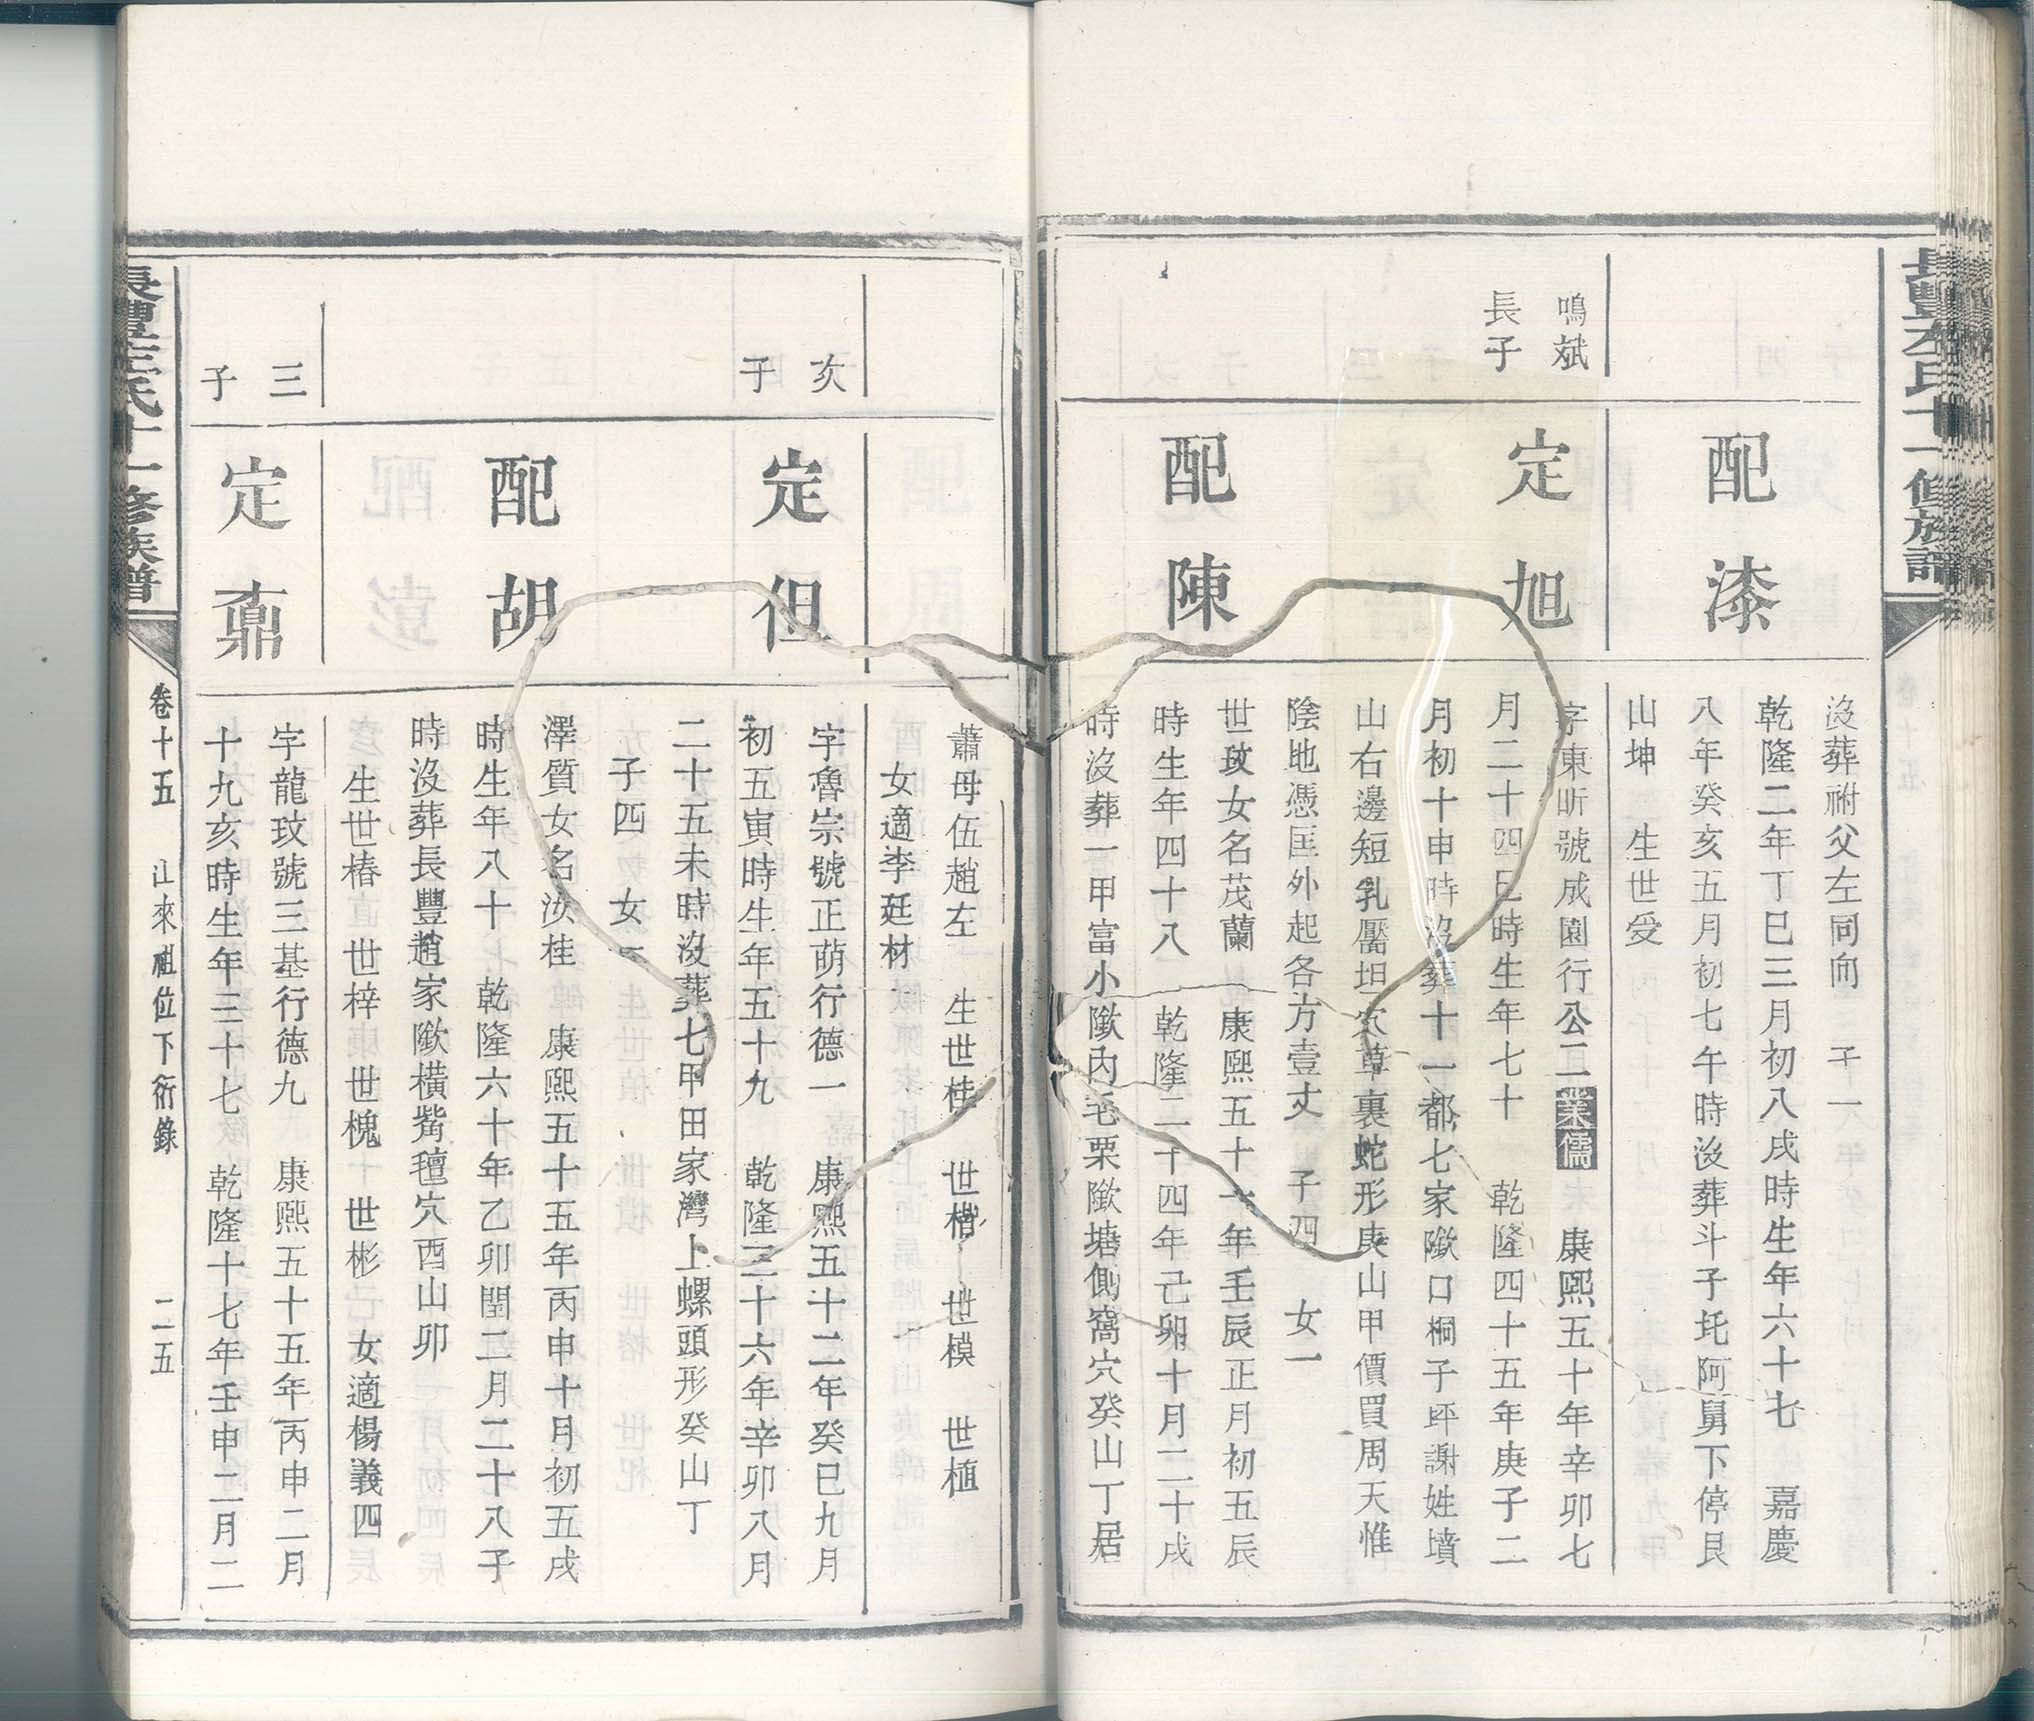 長豐左氏十一修族譜
沒葬祔父左同向　子一
配漆
乾隆二年丁巳三月初八戌時生年六十七　嘉慶
八年癸亥五月初七午時沒葬斗子坨阿舅下停艮
山坤　生世受
鳴斌
長子
定旭
字東昕號成園行公二業儒　康熙五十年辛卯七
月二十四巳時生年七十　乾隆四十五年庚子二
月初十申時沒葬十一都七家隞口桐子坪謝姓墳
山右邊短乳屬坦穴草裏蛇形庚山甲價買周天惟
陰地憑匡外起各方壹丈　子四　女一
配陳
世攻女名茂蘭　康熙五十一年壬辰正月初五辰
時生年四十八　乾隆二十四年己卯十月二十戌
時沒葬一甲富小隞內毛栗隞塘側窩穴癸山丁居
蕭母伍趙左　生世桂　世楷　世模　世植
女適李廷材
次
子
定但
字魯宗號正萌行德一　康熙五十二年癸巳九月
初五寅時生年五十九　乾隆三十六年辛卯八月
二十五未時沒葬七甲田家灣上螺頭形癸山丁
子四　女一
配胡
澤質女名汝桂　康熙五十五年丙申十月初五戌
時生年八十　乾隆六十年乙卯閏二月二十八子
時沒葬長豐趙家隞橫觜穴酉山卯
生世椿　世梓　世槐　世彬　女適楊義四
三
子
定鼒
字龍玟號三基行德九　康熙五十五年丙申二月
十九亥時生年三十七　乾隆十七年壬申二月二
長豐左氏十一修族譜
卷十五　山來祖位下衍錄　二五